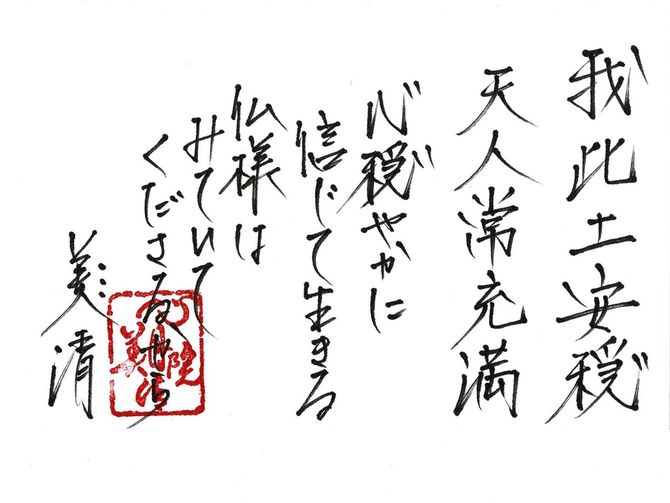 我此土安穏
天人常充満
心穏やかに
信じて生きる
仏様は
みていて
くださる
美清